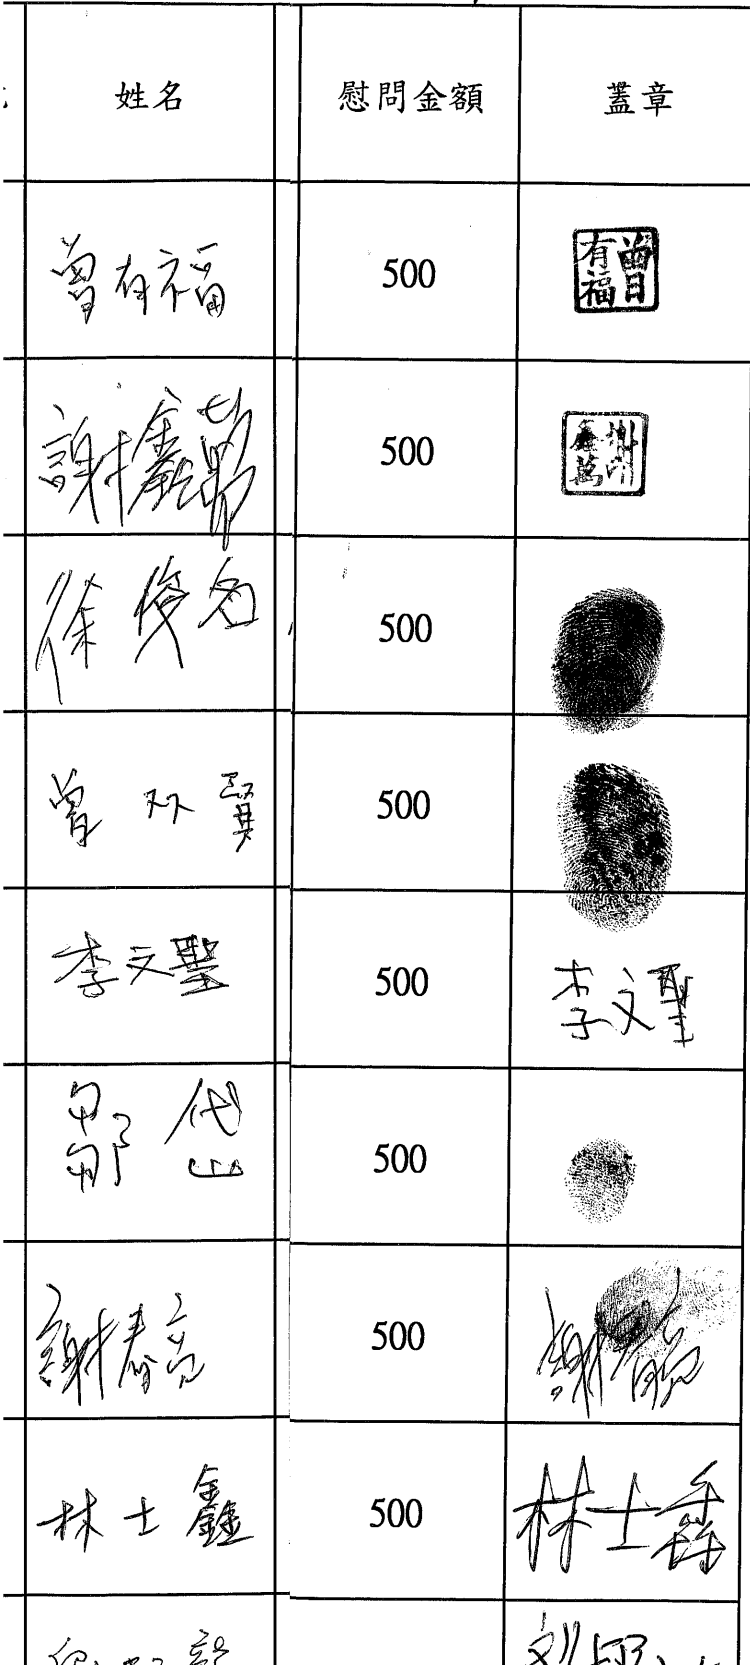 姓名 慰問金額 蓋章
曾有福 500 曾有福
謝鑫萬 500 謝印鑫萬
徐俊 500
曾双賢 500
李文聖 500 李文聖
鄒岱 500
謝春亮 500 謝春亮
林士鑫 500 林士鑫